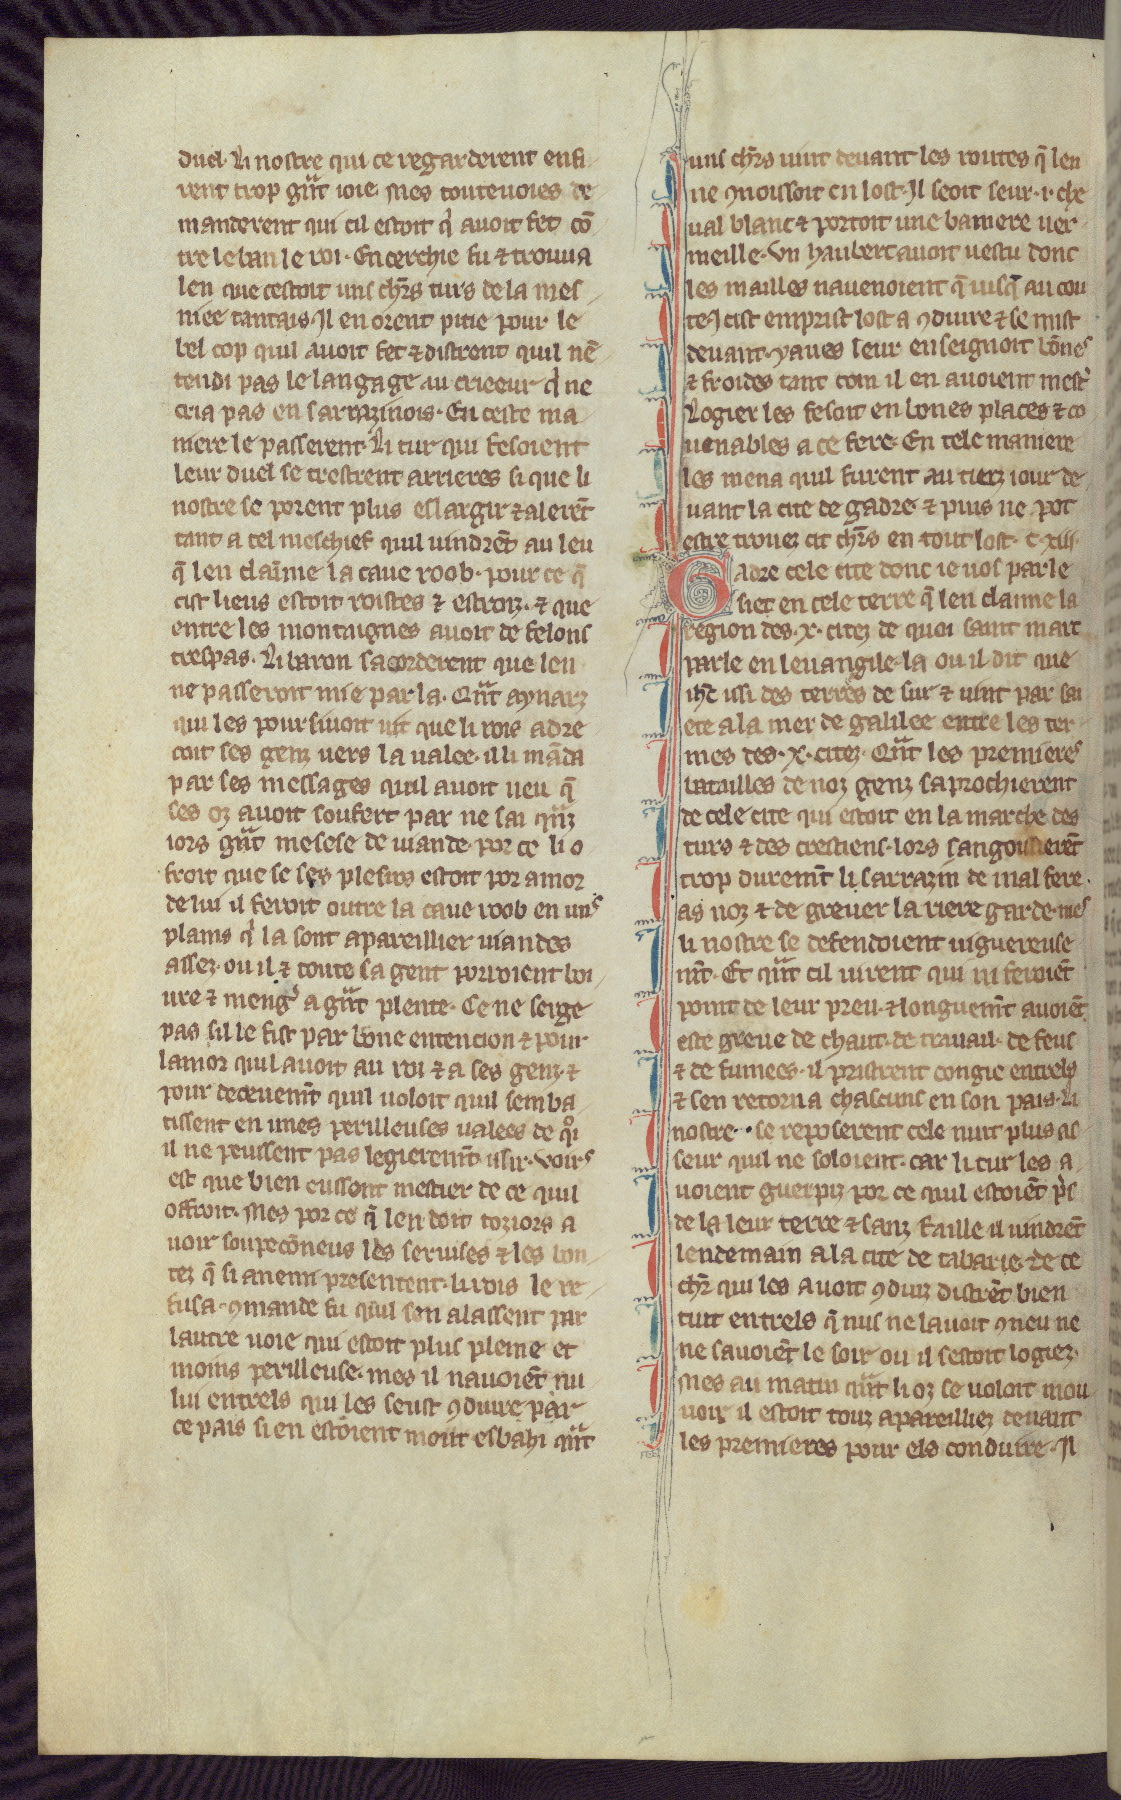 duel. Li nostre qui ce regarderent enfi
rent trop gñt ioie. Mes toutevoies de
manderent qui cil estoit qi avoit fet cō
tre le ban le roi. Encerchie fu ⁊ trouua
len que cestoit uns chrs turs de la mes
niee tantais. Il en orent pitie pour le
bel cop quil avoit fet ⁊ distrent quil nē
tendi pas le langage au crieeur qi ne
cria pas en sarrazinois. En ceste ma
niere le passerent. Li tur qui fesoient
leur duel se trestrent arrieres si que li
nostre se porent plus eslargir ⁊ alerēt
tant a tel meschief quil uindrēt au leu
q̄ len claime la caue roob. pour ce q̄
cist lieus estoit roistes ⁊ estroiz. ⁊ que
entre les montaignes avoit de felons
trespas. Li baron sacorderent que len
ne passeroit mie par la. Qñt aynarz
qui les poursiuoit uit que li rois adre
coit ses genz vers la ualee. il li māda
par ses messages quil avoit ueu q̄
ses oz avoit soufert par ne sai qñz
iors gñt mesese de uiande. por ce li o
froit que se ses plesirs estoit por amor
de lui il feroit outre la caue roob en uns
plains qi la sont apareillier uiandes
assez. ou il ⁊ toute sa gent porroient boi
ure ⁊ mengi a gñt plente. Ce ne seige
pas sil le fist par bone entencion ⁊ pour
lamor quil avoit au roi ⁊ a ses genz. ⁊
pour decevemt̄ quil voloit quil semba
tissent en unes perilleuses ualees de qoi
il ne peussent pas legieremt̄ issir. Voirs
est que bien eussont mestier de ce quil
offroit. Mes por ce q̄ len doit toziors a
uoir soupecōneus les seruises ⁊ les bon
tez q̄ si anemi presentent. li rois le re
fusa. ꝯmande fu quil sen alassent par
lautre uoie qui estoit plus pleine et
moins perilleuse. mes il nauoiēt nu
lui entrels qui les seust ꝯduire par
ce pais si en estoient mout esbahi qñt
uns chrs uint deuant les routes q̄ len
ne ꝯnoissoit en lost. Il seoit seur .i. che
ual blanc ⁊ portoit une baniere uer
meille. Vn haubert auoit uestu donc
les mailles nauenoient q̄ iusq̄ au cou
te. Cist emprist lost a ꝯduire ⁊ se mist
deuant. yaues leur enseignoit bōnes
⁊ froides tant com il en auoient mesti
Logier les fesoit en bones places ⁊ co
uenables a ce fere. En tele maniere
les mena quil furent au tierz iour de
uant la cite de gadre ⁊ puis ne pot
estre trouez cit chrs en tout lost. c. xiii.
Gadre cele cite donc ie uos parle
siet en cele terre q̄ len claime la
region des .x. citez de quoi saint marc
parle en leuangile. la ou il dit que
ihc̄ issi des terres de sur ⁊ uint par sai
ete a la mer de galilee entre les ter
mes des .x. citez. Qñt les premieres
batailles de noz genz saprochierent
de cele cite qui estoit en la marche des
turs ⁊ des crestiens. lors sangousserēt
trop duremt̄ li sarrazin de mal fere.
as noz ⁊ de greuer la riere garde. mes
li nostre se defendoient uiguereuse
mt̄. Et qñt cil uirent qui ni feroiēt
point de leur preu. ⁊ longuemt̄ auoiēt
este greue de chaut. de trauail. de feus
⁊ de fumees. il pristrent congie entrels
⁊ sen retorna chascuns en son pais. Li
nostre se reposerent cele nuit plus as
seur quil ne soloient. car li tur les a
uoient guerpiz por ce quil estoiēt ps
de la leur terre ⁊ sanz faille il uindrēt
lendemain a la cite de tabarie. de ce
chr̄ qui les auoit ꝯduiz distrēt bien
tuit entrels q̄ nus ne lauoit ꝯneu ne
ne sauoiēt le soir ou il sestoit logiez.
Mes au matin qñt li oz se uoloit mou
uoir il estoit touz apareilliez deuant
les premieres pour els conduire. Il